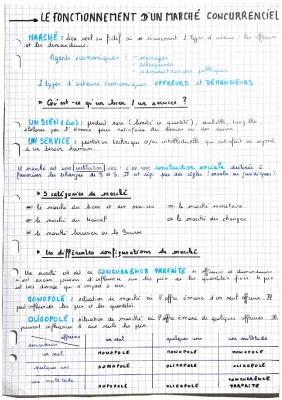 LE FONCTIONNEMENT D'UN MARCHÉ CONCURRENCIEL
MARCHÉ : lieu réel ou fictif où se réunissent 2 types d'acteurs : les offreurs
et les demandeurs.
Agents économiques : - ménages
- entreprises
- administrations publiques
2 types d'acteurs économiques OFFREURS et DEMANDEURS
Qu'est-ce qu'un bien / un service ?
UN BIEN (éco) : produit rare (limité en quantité),
par l'homme pour satisfaire un besoin ou un désir.
UN SERVICE : prestation technique ou intellectuelle qui satisfait ou répond
à un besoin humain.
Le marché est une institution car c'est une construction sociale destinée à
favoriser les échanges de B & S. Il est régi par des règles sociales ou juridiques !
5 catégories de marché
le marché des biens et des services
le marché monétaire
le marché du travail
le marché des changes
le marché boursier ou la Bourse
Les différentes configurations de marché
Un marché est dit en CONCURRENCE PARFAITE si offreurs et demandeurs
n'ont aucun pouvoir d'influence sur les prix
MONOPOLE : situation de marché où l'offre émane d'un seul offreur. Il
peut influencer les prix et les quantités.
OLIGOPOLE : situation de marché où l'offre émane de quelques offreurs. Ils
peuvent influencer à eux seuls les prix.
offreurs
demandeurs
un seul
quelques-uns
une multitude
un seul
MONOPOLE
MONOPOLE
MONOPOLE
quelques-uns
MONOPOLE
OLIGOPOLE
OLIGOPOLE
une multitude
MONOPOLE
OLIGOPOLE
CONCURRENCE
PARFAITE